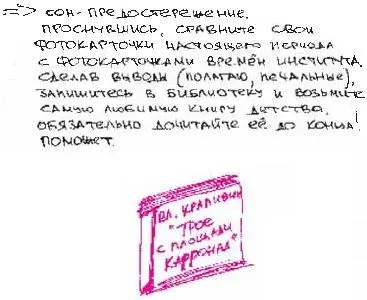 => СОН-ПРЕДОСТЕРЕЖЕНИЕ.
ПРОСНУВШИСЬ, СРАВНИТЕ СВОИ
ФОТОКАРТОЧКИ НАСТОЯЩЕГО ПЕРИОДА
С ФОТОКАРТОЧКАМИ ВРЕМЁН ИНСТИТУТА.
СДЕЛАВ ВЫВОДЫ (ПОЛАГАЮ, ПЕЧАЛЬНЫЕ),
ЗАПИШИТЕСЬ В БИБЛИОТЕКУ И ВОЗЬМИТЕ
САМУЮ ЛЮБИМУЮ КНИГУ ДЕТСТВА.
ОБЯЗАТЕЛЬНО ДОЧИТАЙТЕ ЕЁ ДО КОНЦА!
ПОМОЖЕТ.
ВЛ. КРАПИВИН
"ТРОЕ
С ПЛОЩАДИ
КАРРОНАД"